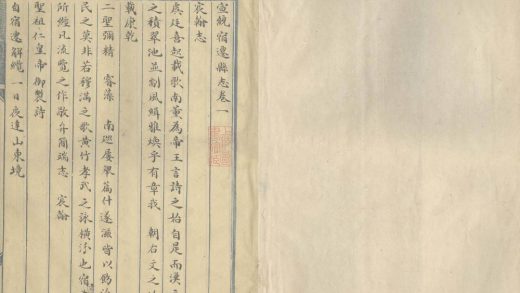 宣統宿遷縣志卷一
宸翰志
虞廷喜起載歌南薰為帝王言詩之始自是而漢
之積翠池並制風緝雅煥乎有章我 朝右文之
載康乾
二聖彌精 睿藻 南巡屢舉篇什遂滋皆以飭
民之莫非若穆滿之歌黃竹孝武之詠橫汾也宿
所經凡流覽之作敬弁簡端志 宸翰
聖祖仁皇帝御製詩
自宿遷解纜一日夜達山東境